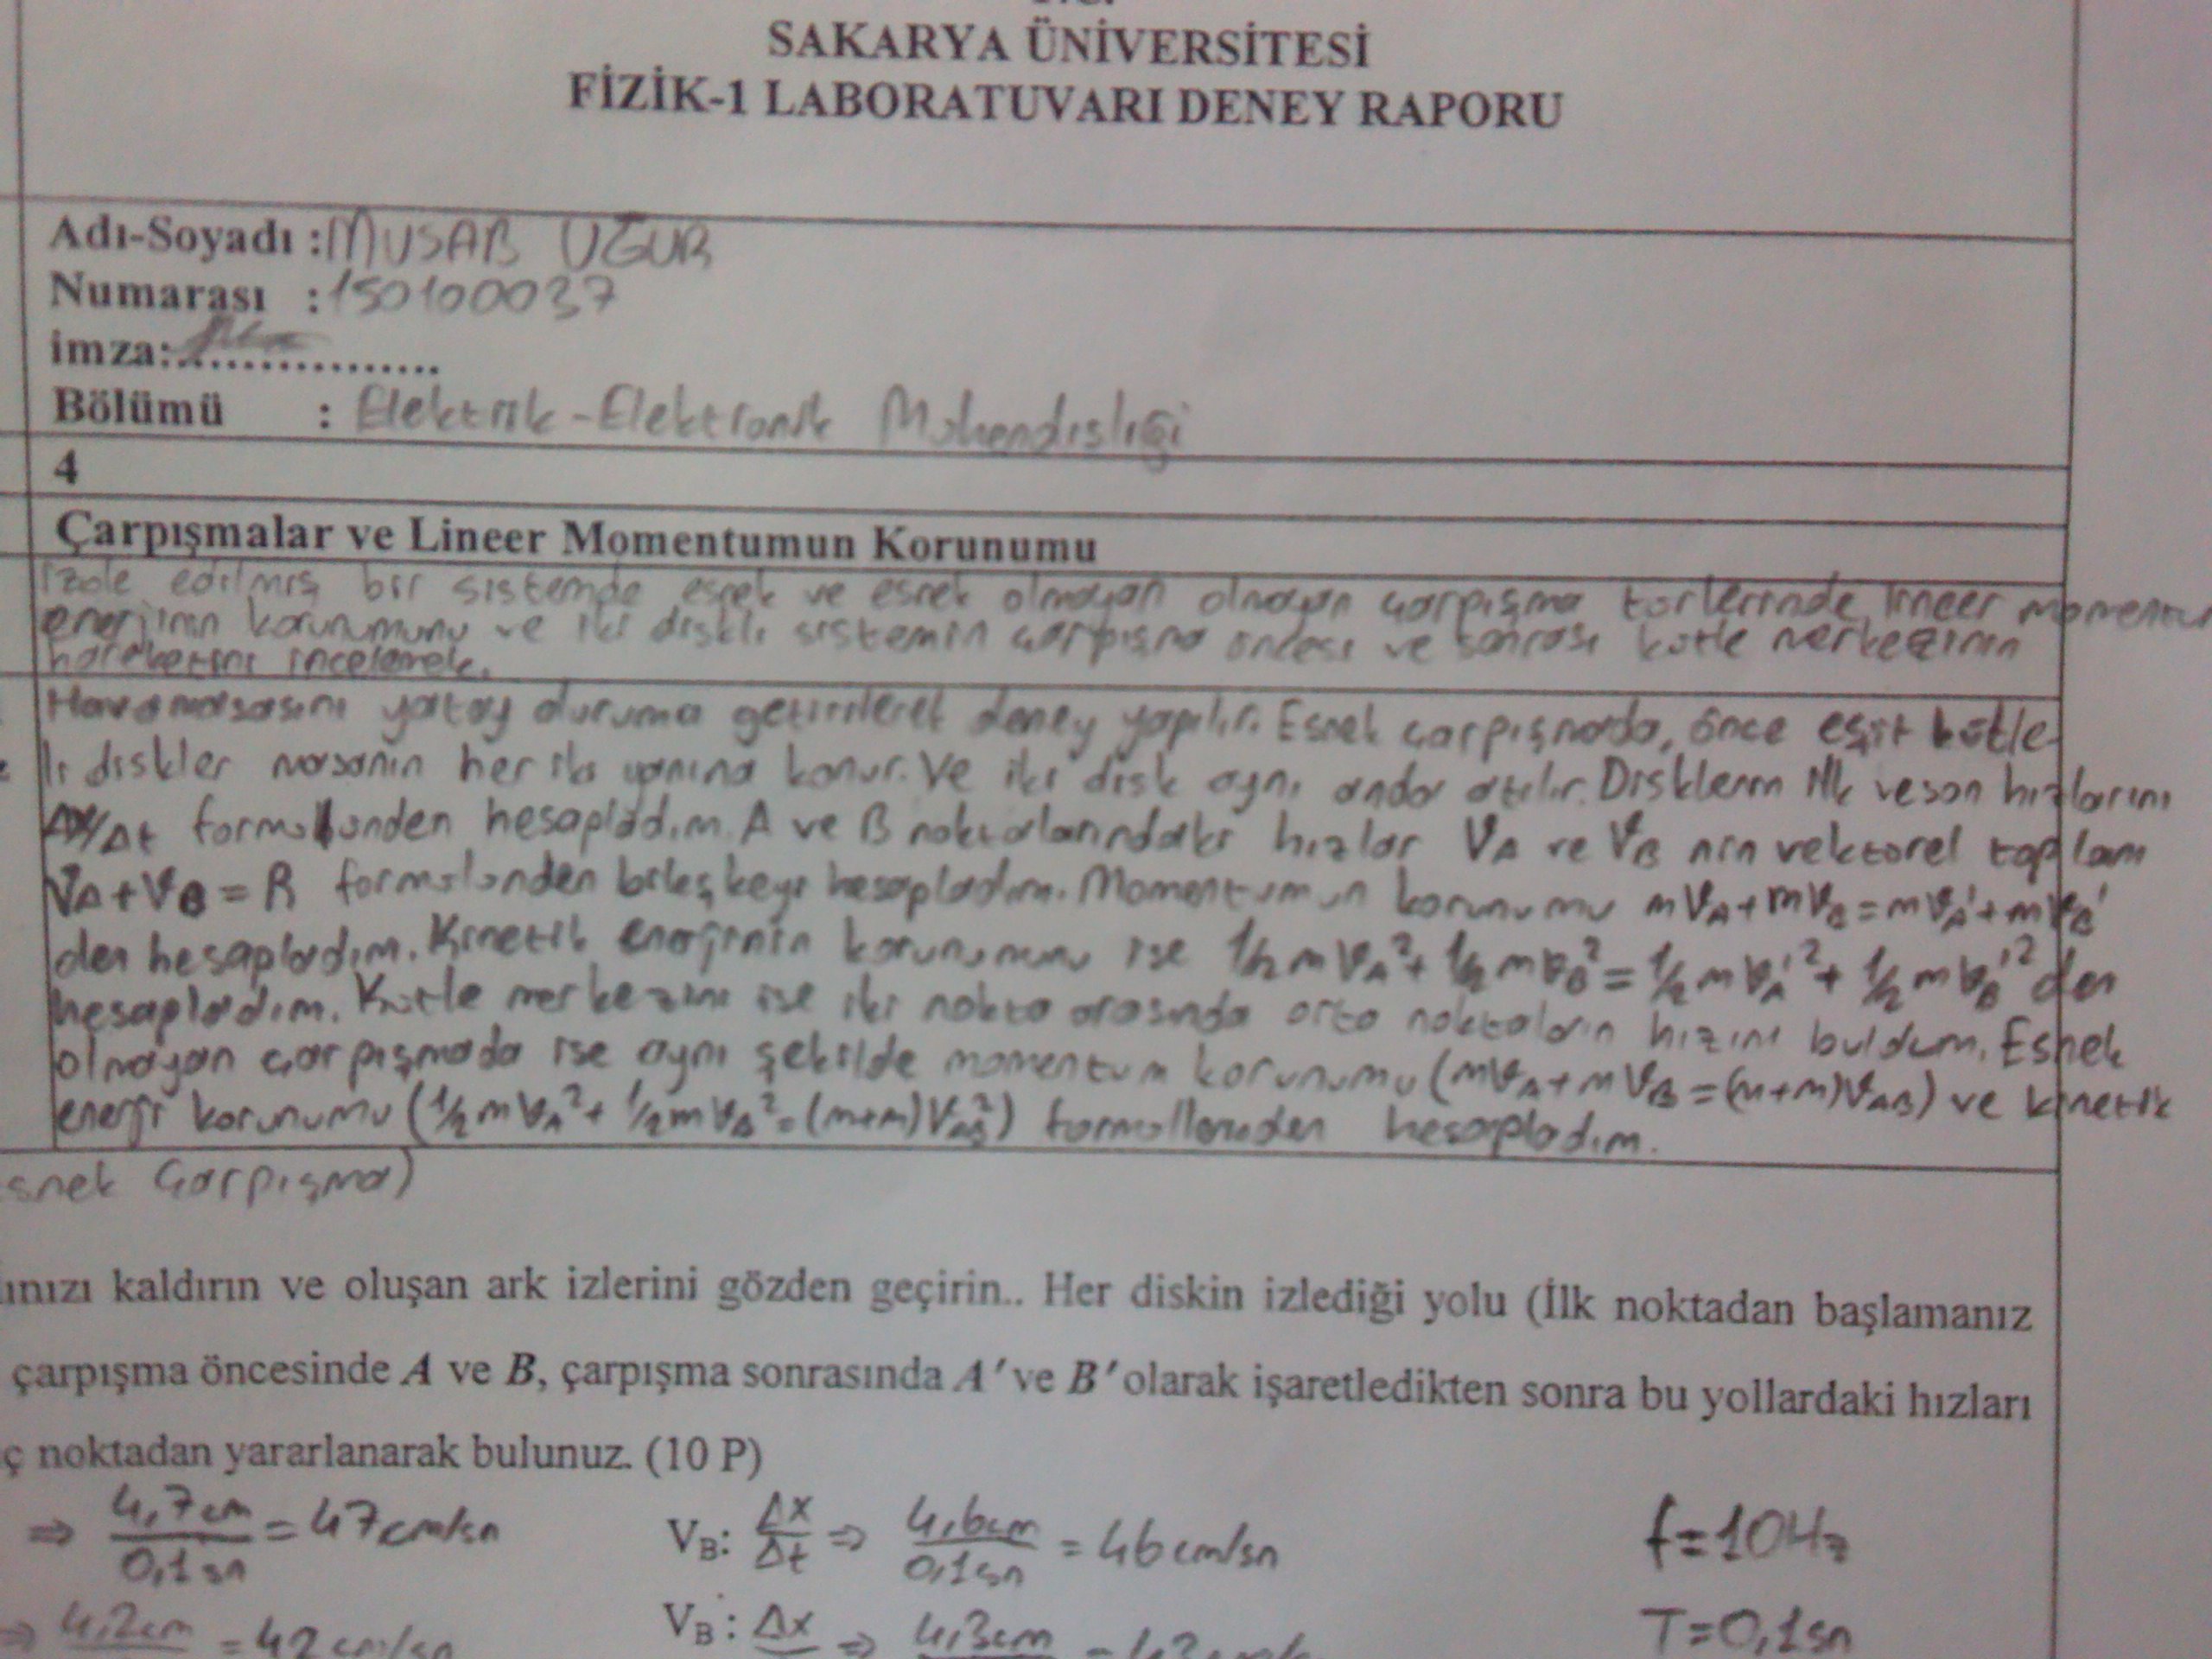 SAKARYA ÜNİVERSİTESİ
FİZİK-1 LABORATUVARI DENEY RAPORU
Adı-Soyadı : MUSAB UĞUR
Numarası : 150100037
imza:..................
Bölümü : Elektrik-Elektronik Mühendisliği
4
Çarpışmalar ve Lineer Momentumun Korunumu
İzole edilmiş bir sistemde esnek ve esnek olmayan olmayan çarpışma türlerinde lineer momentu
enerjinin korunumunu ve iki diskli sistemin çarpışma öncesi ve sonrası kütle merkezinin
hareketini incelemek.
Hava masasını yatay duruma getirilerek deney yapılır. Esnek çarpışmada, önce eşit kütle
li diskler masanın her iki yanına konur. Ve iki disk aynı anda atılır. Disklerin ilk ve son hızlarını
Δx/Δt formülünden hesapladım. A ve B noktalarındaki hızlar VA ve VB nin vektörel toplam
VA+VB=R formülünden bileşkeyi hesapladım. Momentumun korunumu mVA+mVB=mVA'+mVB'
den hesapladım. Kinetik enerjinin korunumunu ise 1/2mVA²+1/2mVB²=1/2mVA'²+1/2mVB'² den
hesapladım. Kütle merkezini ise iki nokta arasında orta noktaların hızını buldum. Esnek
olmayan çarpışmada ise aynı şekilde momentum korunumu (mVA+mVB=(m+m)VAB) ve kinetik
enerji korunumu (1/2mVA²+1/2mVB²=(m+m)VAB²) formüllerinden hesapladım.
snek Çarpışma)
ınızı kaldırın ve oluşan ark izlerini gözden geçirin.. Her diskin izlediği yolu (İlk noktadan başlamanız
çarpışma öncesinde A ve B, çarpışma sonrasında A' ve B' olarak işaretledikten sonra bu yollardaki hızları
ç noktadan yararlanarak bulunuz. (10 P)
⇒ 4,7cm/0,1sn = 47cm/sn VB: Δx/Δt ⇒ 4,6cm/0,1sn = 46cm/sn f=10Hz
⇒ 4,2cm = 42cm/sn VB: Δx ⇒ 4,3cm T=0,1sn